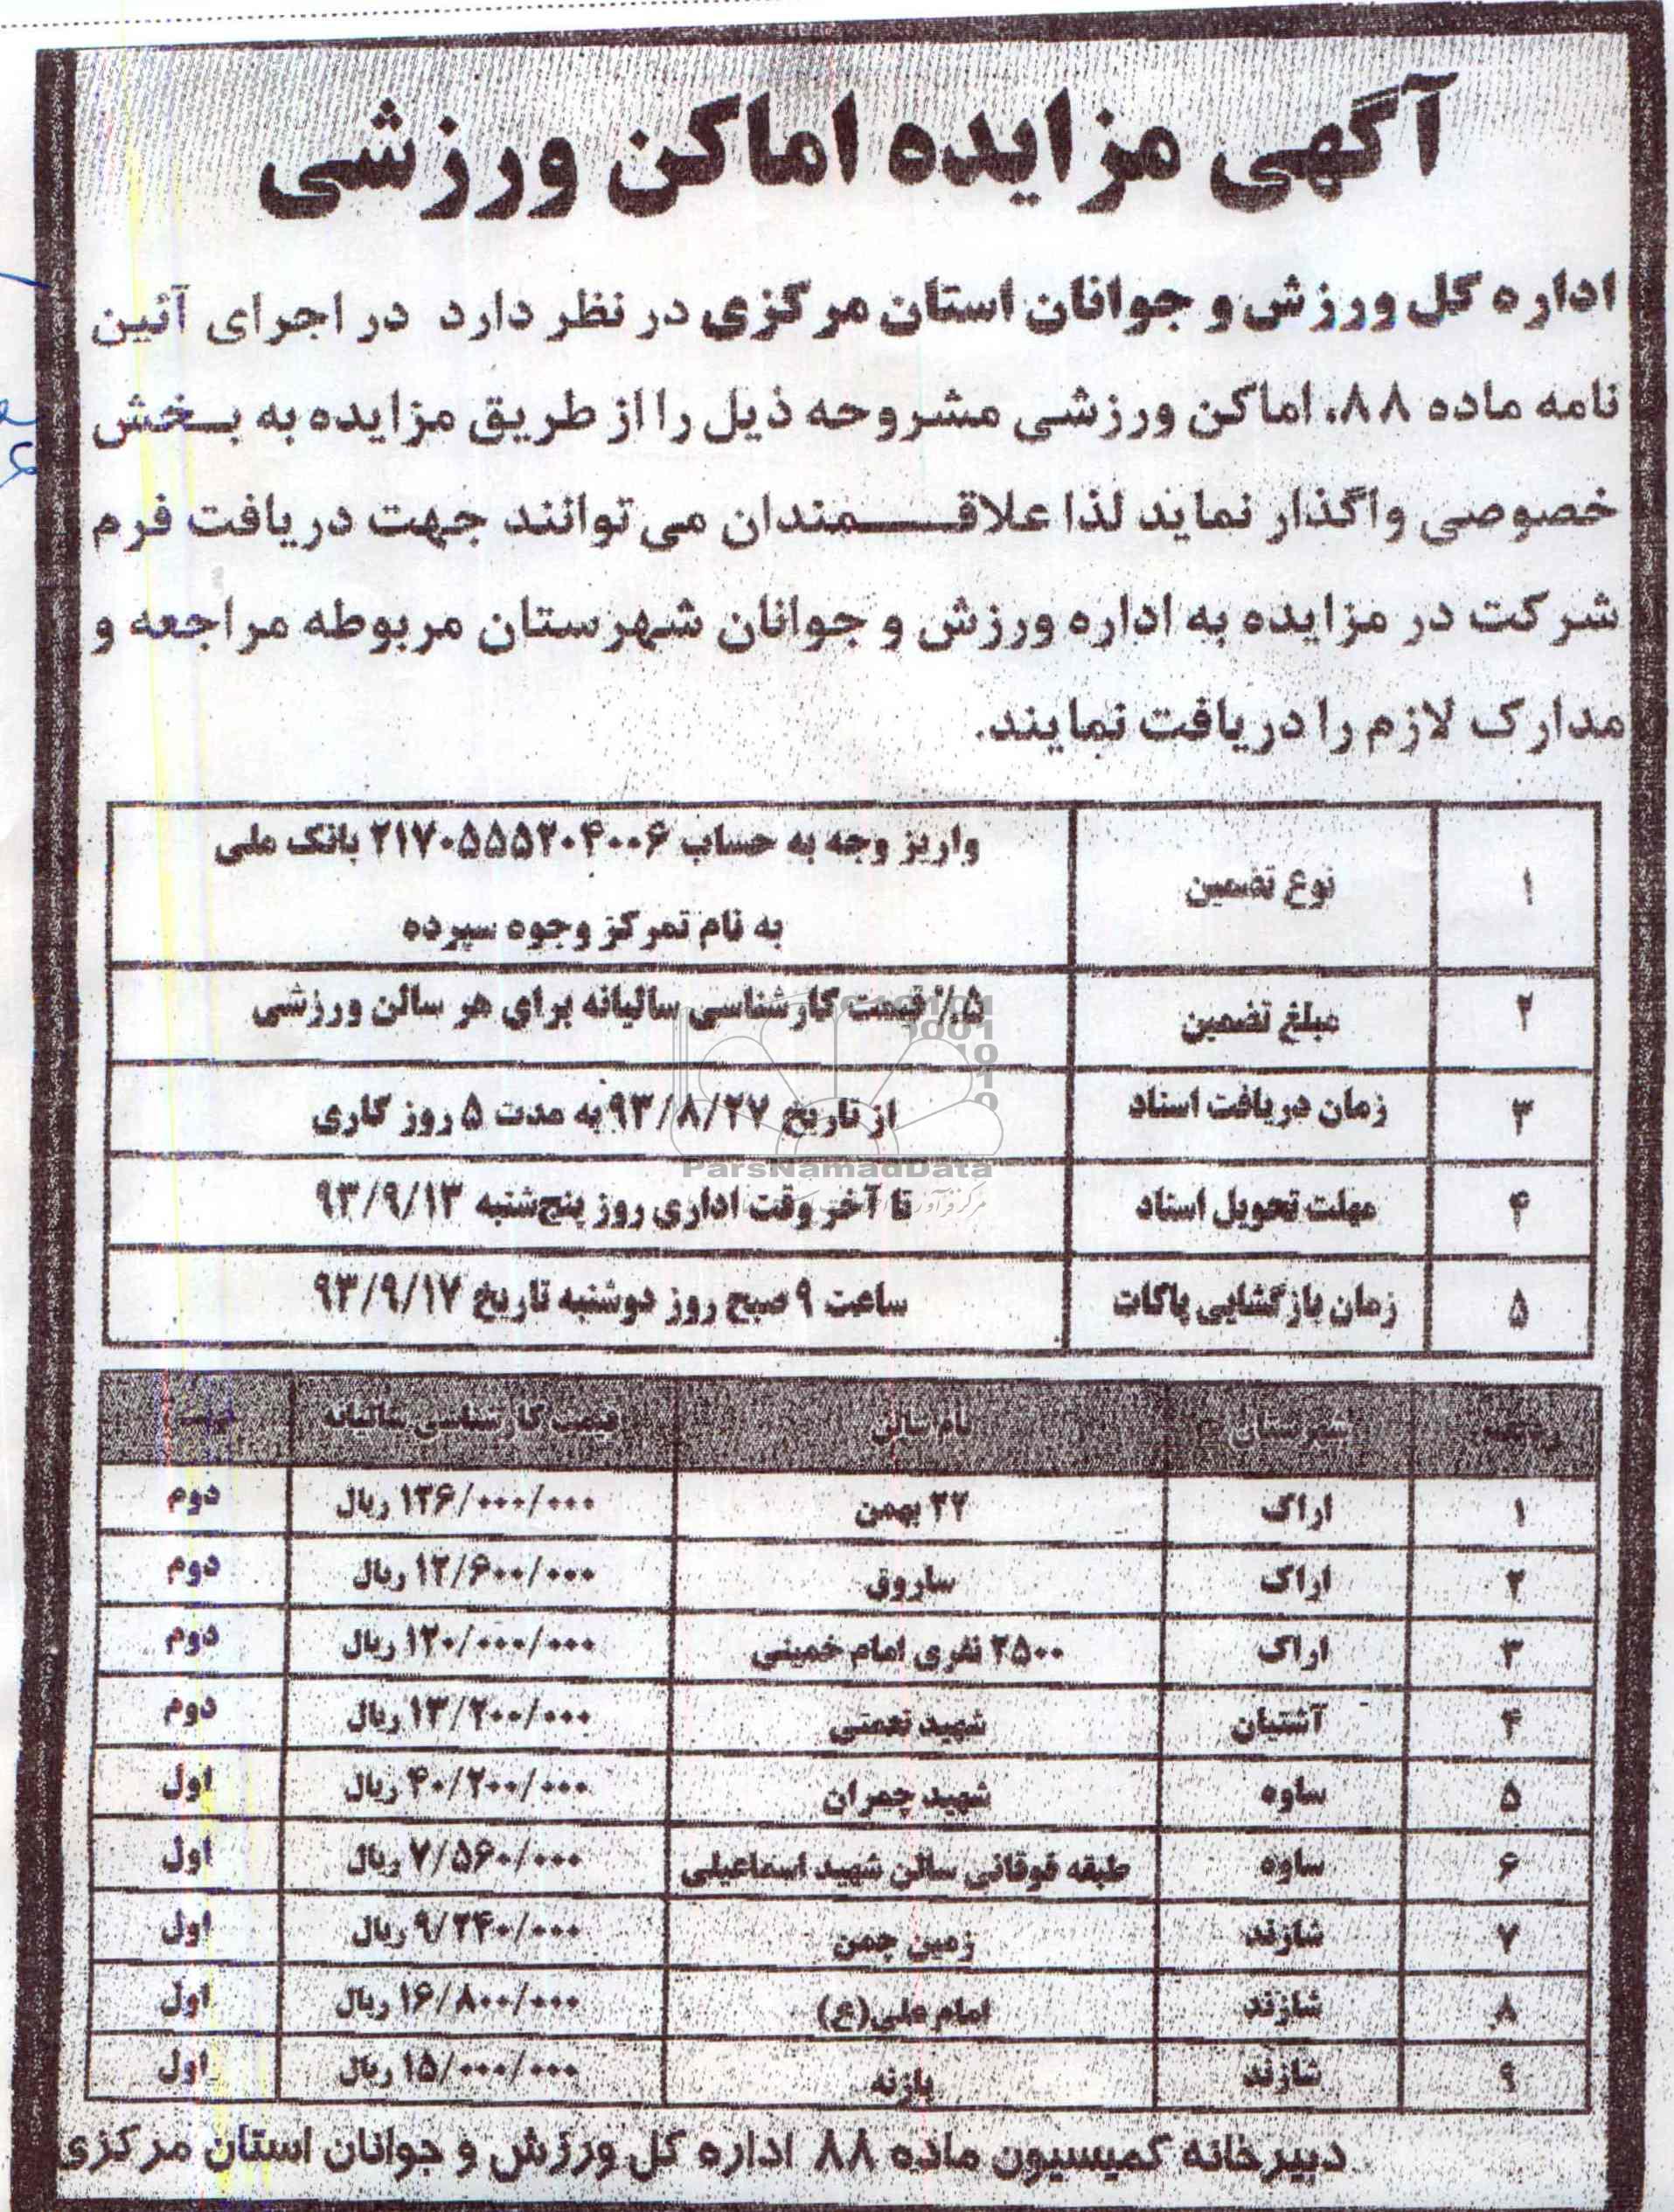 آگهی مزایده اماکن ورزشی
اداره کل ورزش و جوانان استان مرکزی در نظر دارد در اجرای آئین
نامه ماده ۸۸، اماکن ورزشی مشروحه ذیل را از طریق مزایده به بخش
خصوصی واگذار نماید لذا علاقمندان می توانند جهت دریافت فرم
شرکت در مزایده به اداره ورزش و جوانان شهرستان مربوطه مراجعه و
مدارک لازم را دریافت نمایند.
۱ نوع تضمین واریز وجه به حساب ۲۱۷۰۵۵۵۲۰۴۰۰۶ بانک ملی
به نام تمرکز وجوه سپرده
۲ مبلغ تضمین ۵٪ قیمت کارشناسی سالیانه برای هر سالن ورزشی
۳ زمان دریافت اسناد از تاریخ ۹۳/۸/۲۷ به مدت ۵ روز کاری
۴ مهلت تحویل اسناد تا آخر وقت اداری روز پنج‌شنبه ۹۳/۹/۱۳
۵ زمان بازگشایی پاکات ساعت ۹ صبح روز دوشنبه تاریخ ۹۳/۹/۱۷
ParsNamadData
شهرستان نام سالن قیمت کارشناسی سالیانه
۱ اراک ۲۲ بهمن ۱۲۶/۰۰۰/۰۰۰ ریال دوم
۲ اراک ساروق ۱۲/۶۰۰/۰۰۰ ریال دوم
۳ اراک ۲۵۰۰ نفری امام خمینی ۱۲۰/۰۰۰/۰۰۰ ریال دوم
۴ آشتیان شهید نعمتی ۱۳/۲۰۰/۰۰۰ ریال دوم
۵ ساوه شهید چمران ۴۰/۲۰۰/۰۰۰ ریال اول
۶ ساوه طبقه فوقانی سالن شهید اسماعیلی ۷/۵۶۰/۰۰۰ ریال اول
۷ شازند زمین چمن ۹/۲۴۰/۰۰۰ ریال اول
۸ شازند امام علی(ع) ۱۶/۸۰۰/۰۰۰ ریال اول
۹ شازند بازنه ۱۵/۰۰۰/۰۰۰ ریال اول
دبیرخانه کمیسیون ماده ۸۸ اداره کل ورزش و جوانان استان مرکزی